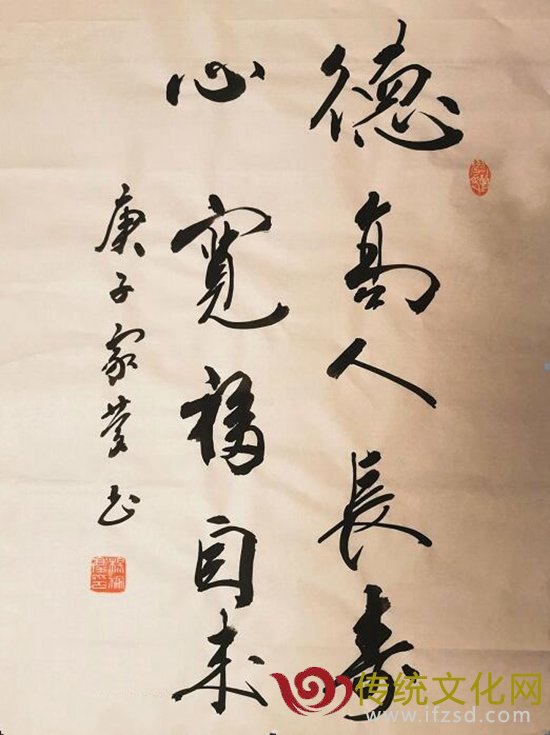 德高人長壽
心寬福自來
庚子家營书
传统文化网
www.ifzsd.com